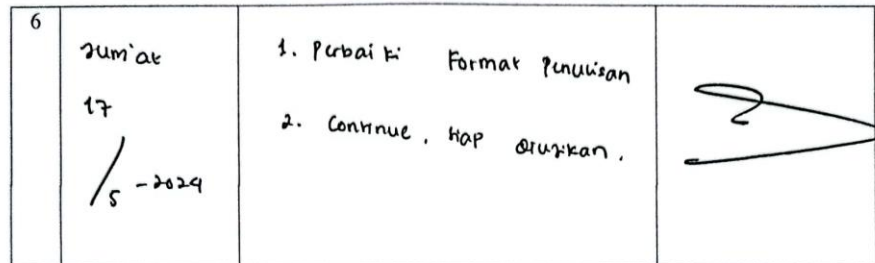 6
Jum'at
17
/5 - 2024
1. Perbaiki Format Penulisan
2. Continue, siap diujikan.